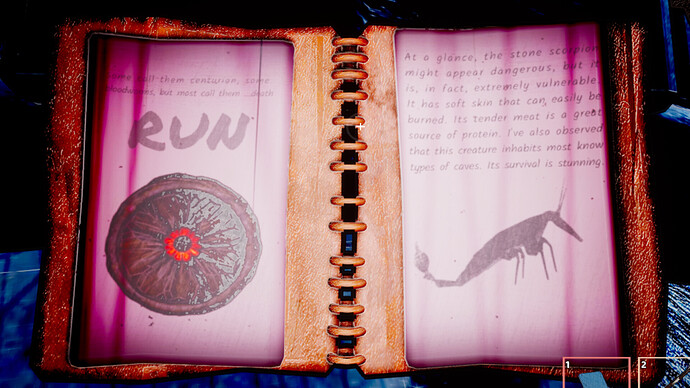 call them centurion, some
bloodworms, but most call them ...death
RUN
At a glance, the stone scorpion
might appear dangerous, but it
is, in fact, extremely vulnerable.
It has soft skin that can easily be
burned. Its tender meat is a great
source of protein. I've also observed
that this creature inhabits most know
types of caves. Its survival is stunning.
1
2